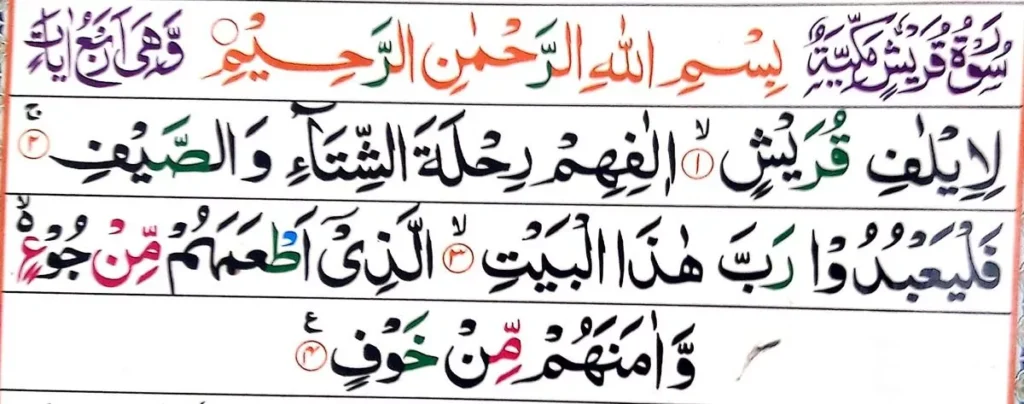 سُوْرَةُ قُرَيْشٍ مَكِّيَّةٌ بِسْمِ اللهِ الرَّحْمٰنِ الرَّحِيْمِ وَّهِىَ اَرْبَعُ اٰيَاتٍ
لِاِيْلٰفِ قُرَيْشٍ ۙ﴿۱﴾ اٖلٰفِهِمْ رِحْلَةَ الشِّتَآءِ وَالصَّيْفِ ۚ﴿۲﴾
فَلْيَعْبُدُوْا رَبَّ هٰذَا الْبَيْتِ ۙ﴿۳﴾ الَّذِىْٓ اَطْعَمَهُمْ مِّنْ جُوْعٍ ۙ
وَّاٰمَنَهُمْ مِّنْ خَوْفٍ ﴿۴﴾ ع